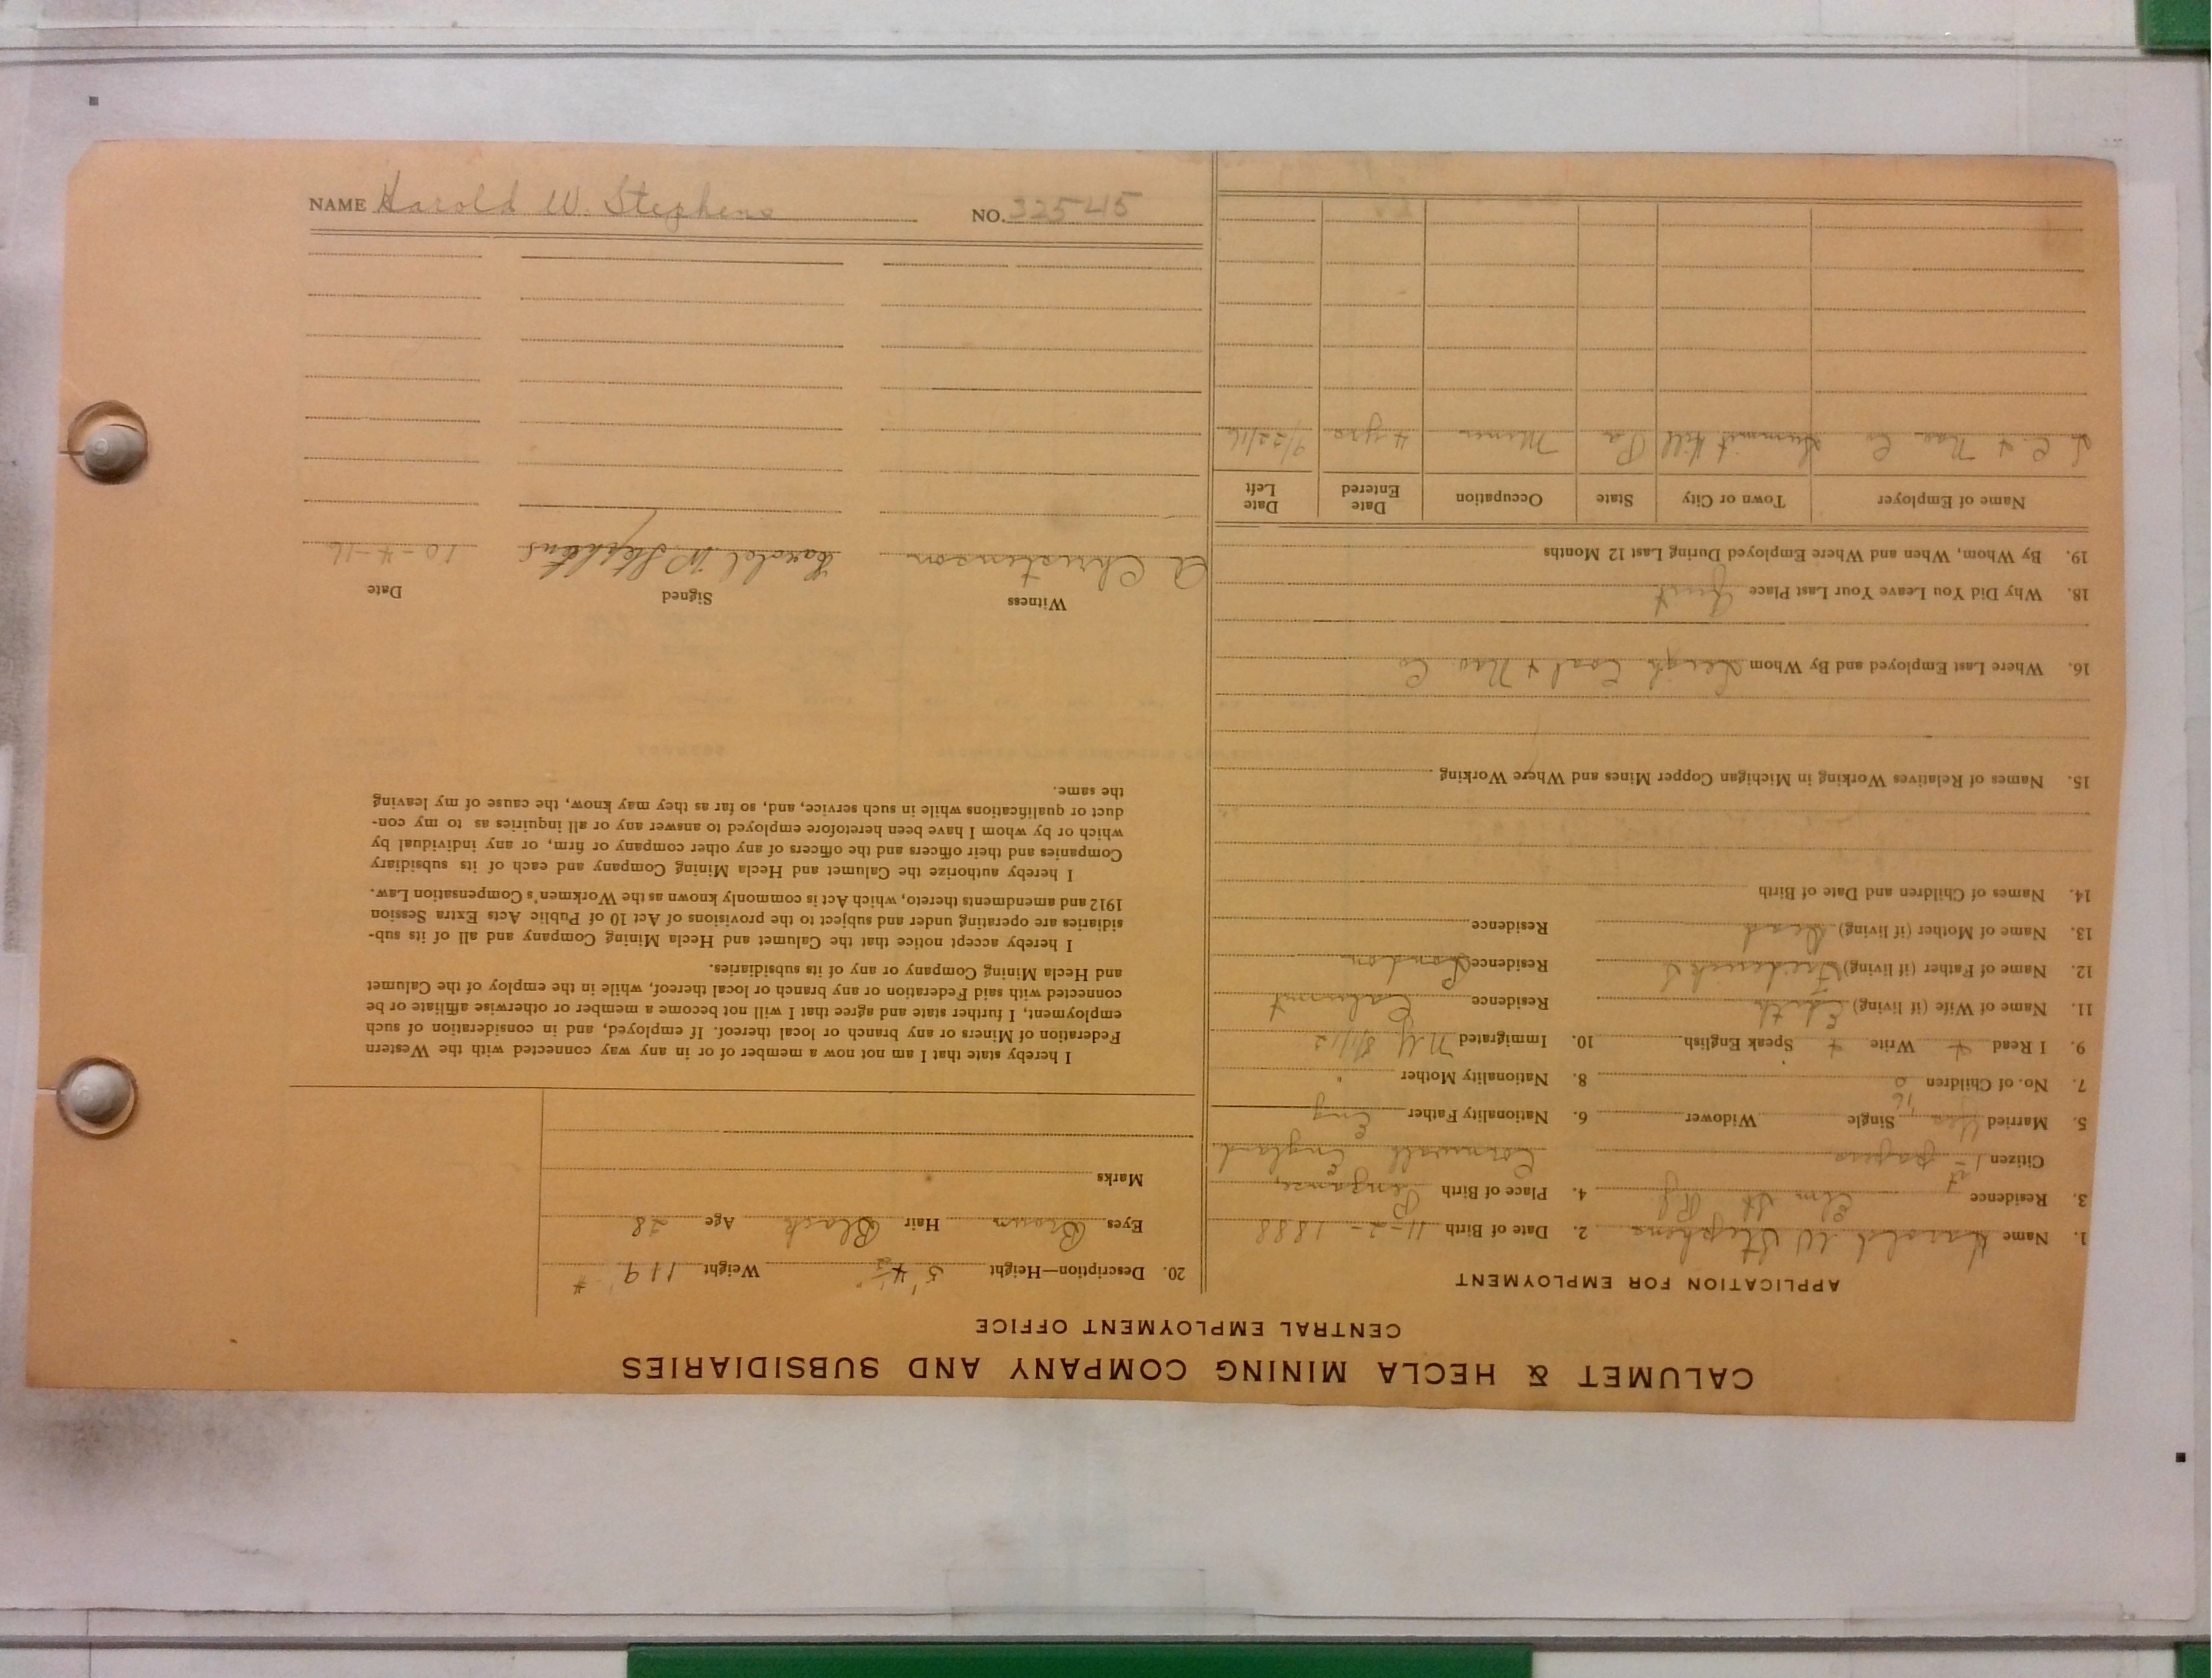 NAME Harold W. Stephens NO. 32545
CALUMET & HECLA MINING COMPANY AND SUBSIDIARIES
CENTRAL EMPLOYMENT OFFICE
APPLICATION FOR EMPLOYMENT
1. Name Harold W Stephens 2. Date of Birth 11-2-1888
3. Residence Elm St 4. Place of Birth Penzance,
Citizen 1st papers Cornwall England
5. Married Yes Single Widower 6. Nationality Father Eng
7. No. of Children 0 8. Nationality Mother "
9. I Read + Write + Speak English 10. Immigrated N.Y. 8/1/12
11. Name of Wife (if living) Edith Residence Calumet
12. Name of Father (if living) Frederick S Residence London
13. Name of Mother (if living) Dead Residence
14. Names of Children and Date of Birth
15. Names of Relatives Working in Michigan Copper Mines and Where Working
16. Where Last Employed and By Whom Leigh Coal & Nav. Co
18. Why Did You Leave Your Last Place Quit
19. By Whom, When and Where Employed During Last 12 Months
Name of Employer Town or City State Occupation Date Entered Date Left
L C & Nav. Co Summit Hill Pa Miner 4 yrs 9/22/16
20. Description—Height 5' 4½" Weight 119 #
Eyes Brown Hair Black Age 28
Marks
I hereby state that I am not now a member of or in any way connected with the Western
Federation of Miners or any branch or local thereof. If employed, and in consideration of such
employment, I further state and agree that I will not become a member or otherwise affiliate or be
connected with said Federation or any branch or local thereof, while in the employ of the Calumet
and Hecla Mining Company or any of its subsidiaries.
I hereby accept notice that the Calumet and Hecla Mining Company and all of its sub-
sidiaries are operating under and subject to the provisions of Act 10 of Public Acts Extra Session
1912 and amendments thereto, which Act is commonly known as the Workmen's Compensation Law.
I hereby authorize the Calumet and Hecla Mining Company and each of its subsidiary
Companies and their officers and the officers of any other company or firm, or any individual by
which or by whom I have been heretofore employed to answer any or all inquiries as to my con-
duct or qualifications while in such service, and, so far as they may know, the cause of my leaving
the same.
Witness Signed Date
A Christenson Harold W Stephens 10-4-16